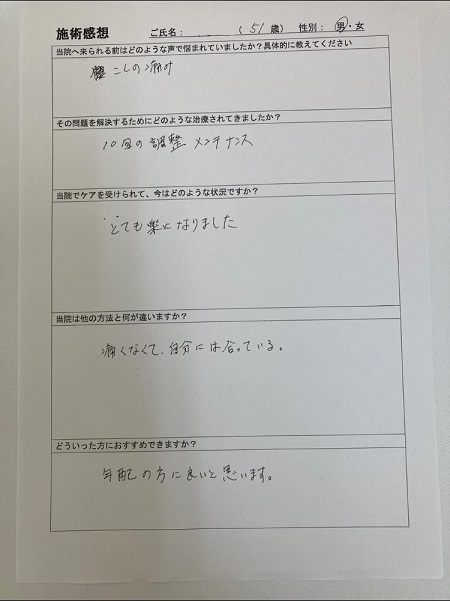 施術感想 ご氏名: (51歳) 性別: 男・女
当院へ来られる前はどのような声で悩まれていましたか?具体的に教えてください
こしの痛み
その問題を解決するためにどのような治療されてきましたか?
10回の調整 メンテナンス
当院でケアを受けられて、今はどのような状況ですか?
とても楽になりました
当院は他の方法と何が違いますか?
痛くなくて、自分には合っている。
どういった方におすすめできますか?
年配の方に良いと思います。